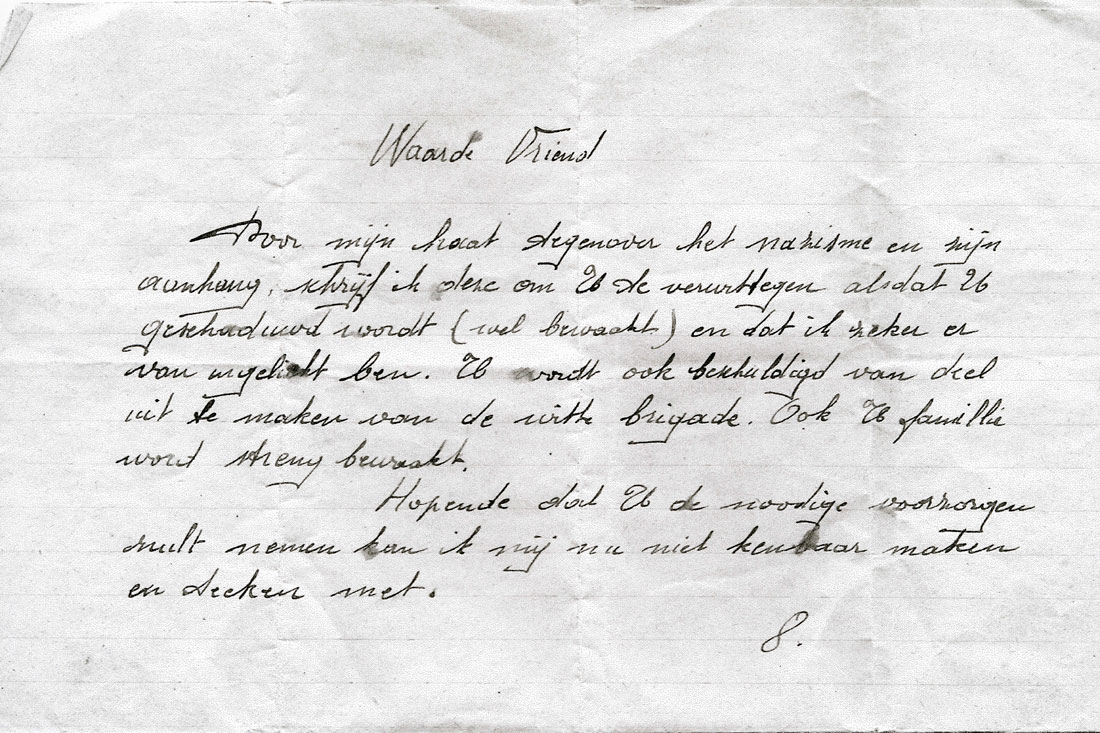 Waarde Vriend
Door mijn haat tegenover het nazisme en zijn
aanhang, schrijf ik deze om U te verwittegen alsdat U
geschaduwd wordt (wel bewaakt) en dat ik zeker er
van ingelicht ben. U wordt ook beschuldigd van deel
uit te maken van de witte brigade. Ook U famillie
word streng bewaakt.
Hopende dat U de noodige voorzorgen
zult nemen kan ik mij nu niet kenbaar maken
en teeken met.
8.